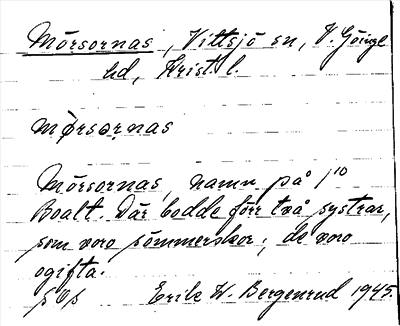 Mörsornas, Vittsjö sn, V. Göinge
hd, Krist. l.
mørsoṛnas
Mörsornas, namn på 1¹⁰
Boalt. Där bodde förr två systrar,
som voro sömmerskor; de voro
ogifta.
Erik W. Bergenrud 1945.